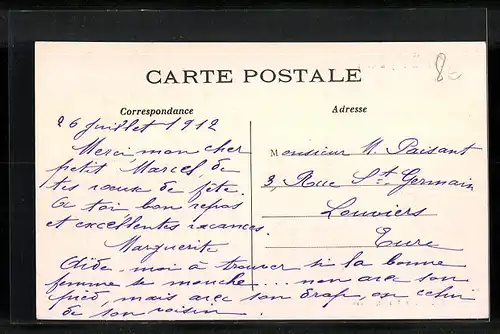 8€
CARTE POSTALE
Correspondance
Adresse
26 Juillet 1912
Merci, mon cher
petit Marcel, de
tes vœux de fête.
A toi, bon repos
et excellentes vacances.
Marguerite
Aide-moi à trouver si la bonne
femme se mouche.... non avec son
pied, mais avec son drap, ou celui
de son voisin.
Monsieur M. Paisant
3, Rue St. Germain
Louviers
Eure